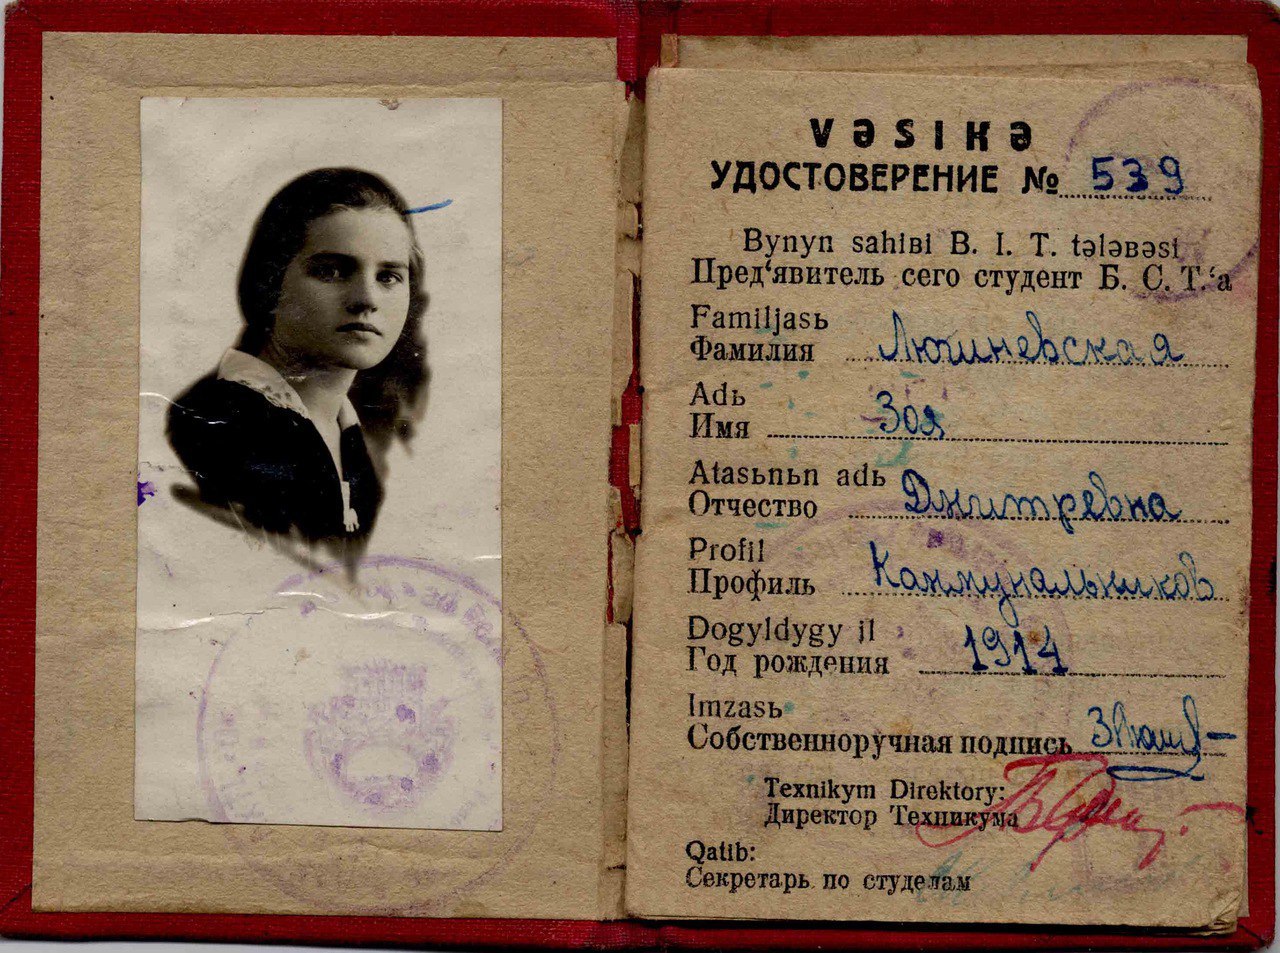 VəSIKə
УДОСТОВЕРЕНИЕ № 539
Bynyn sahiʙi B. I. T. tələʙəsi
Пред‘явитель сего студент Б. С. Т.‘а
Familjasь
Фамилия Лютиневская
Adь
Имя Зоя
Atasьnьn adь
Отчество Дмитревна
Profil
Профиль Коммунальников
Dogyldygy il
Год рождения 1914
Imzasь
Собственноручная подпись
Texnikym Direktory:
Директор Техникума
Qatib:
Секретарь по студелам